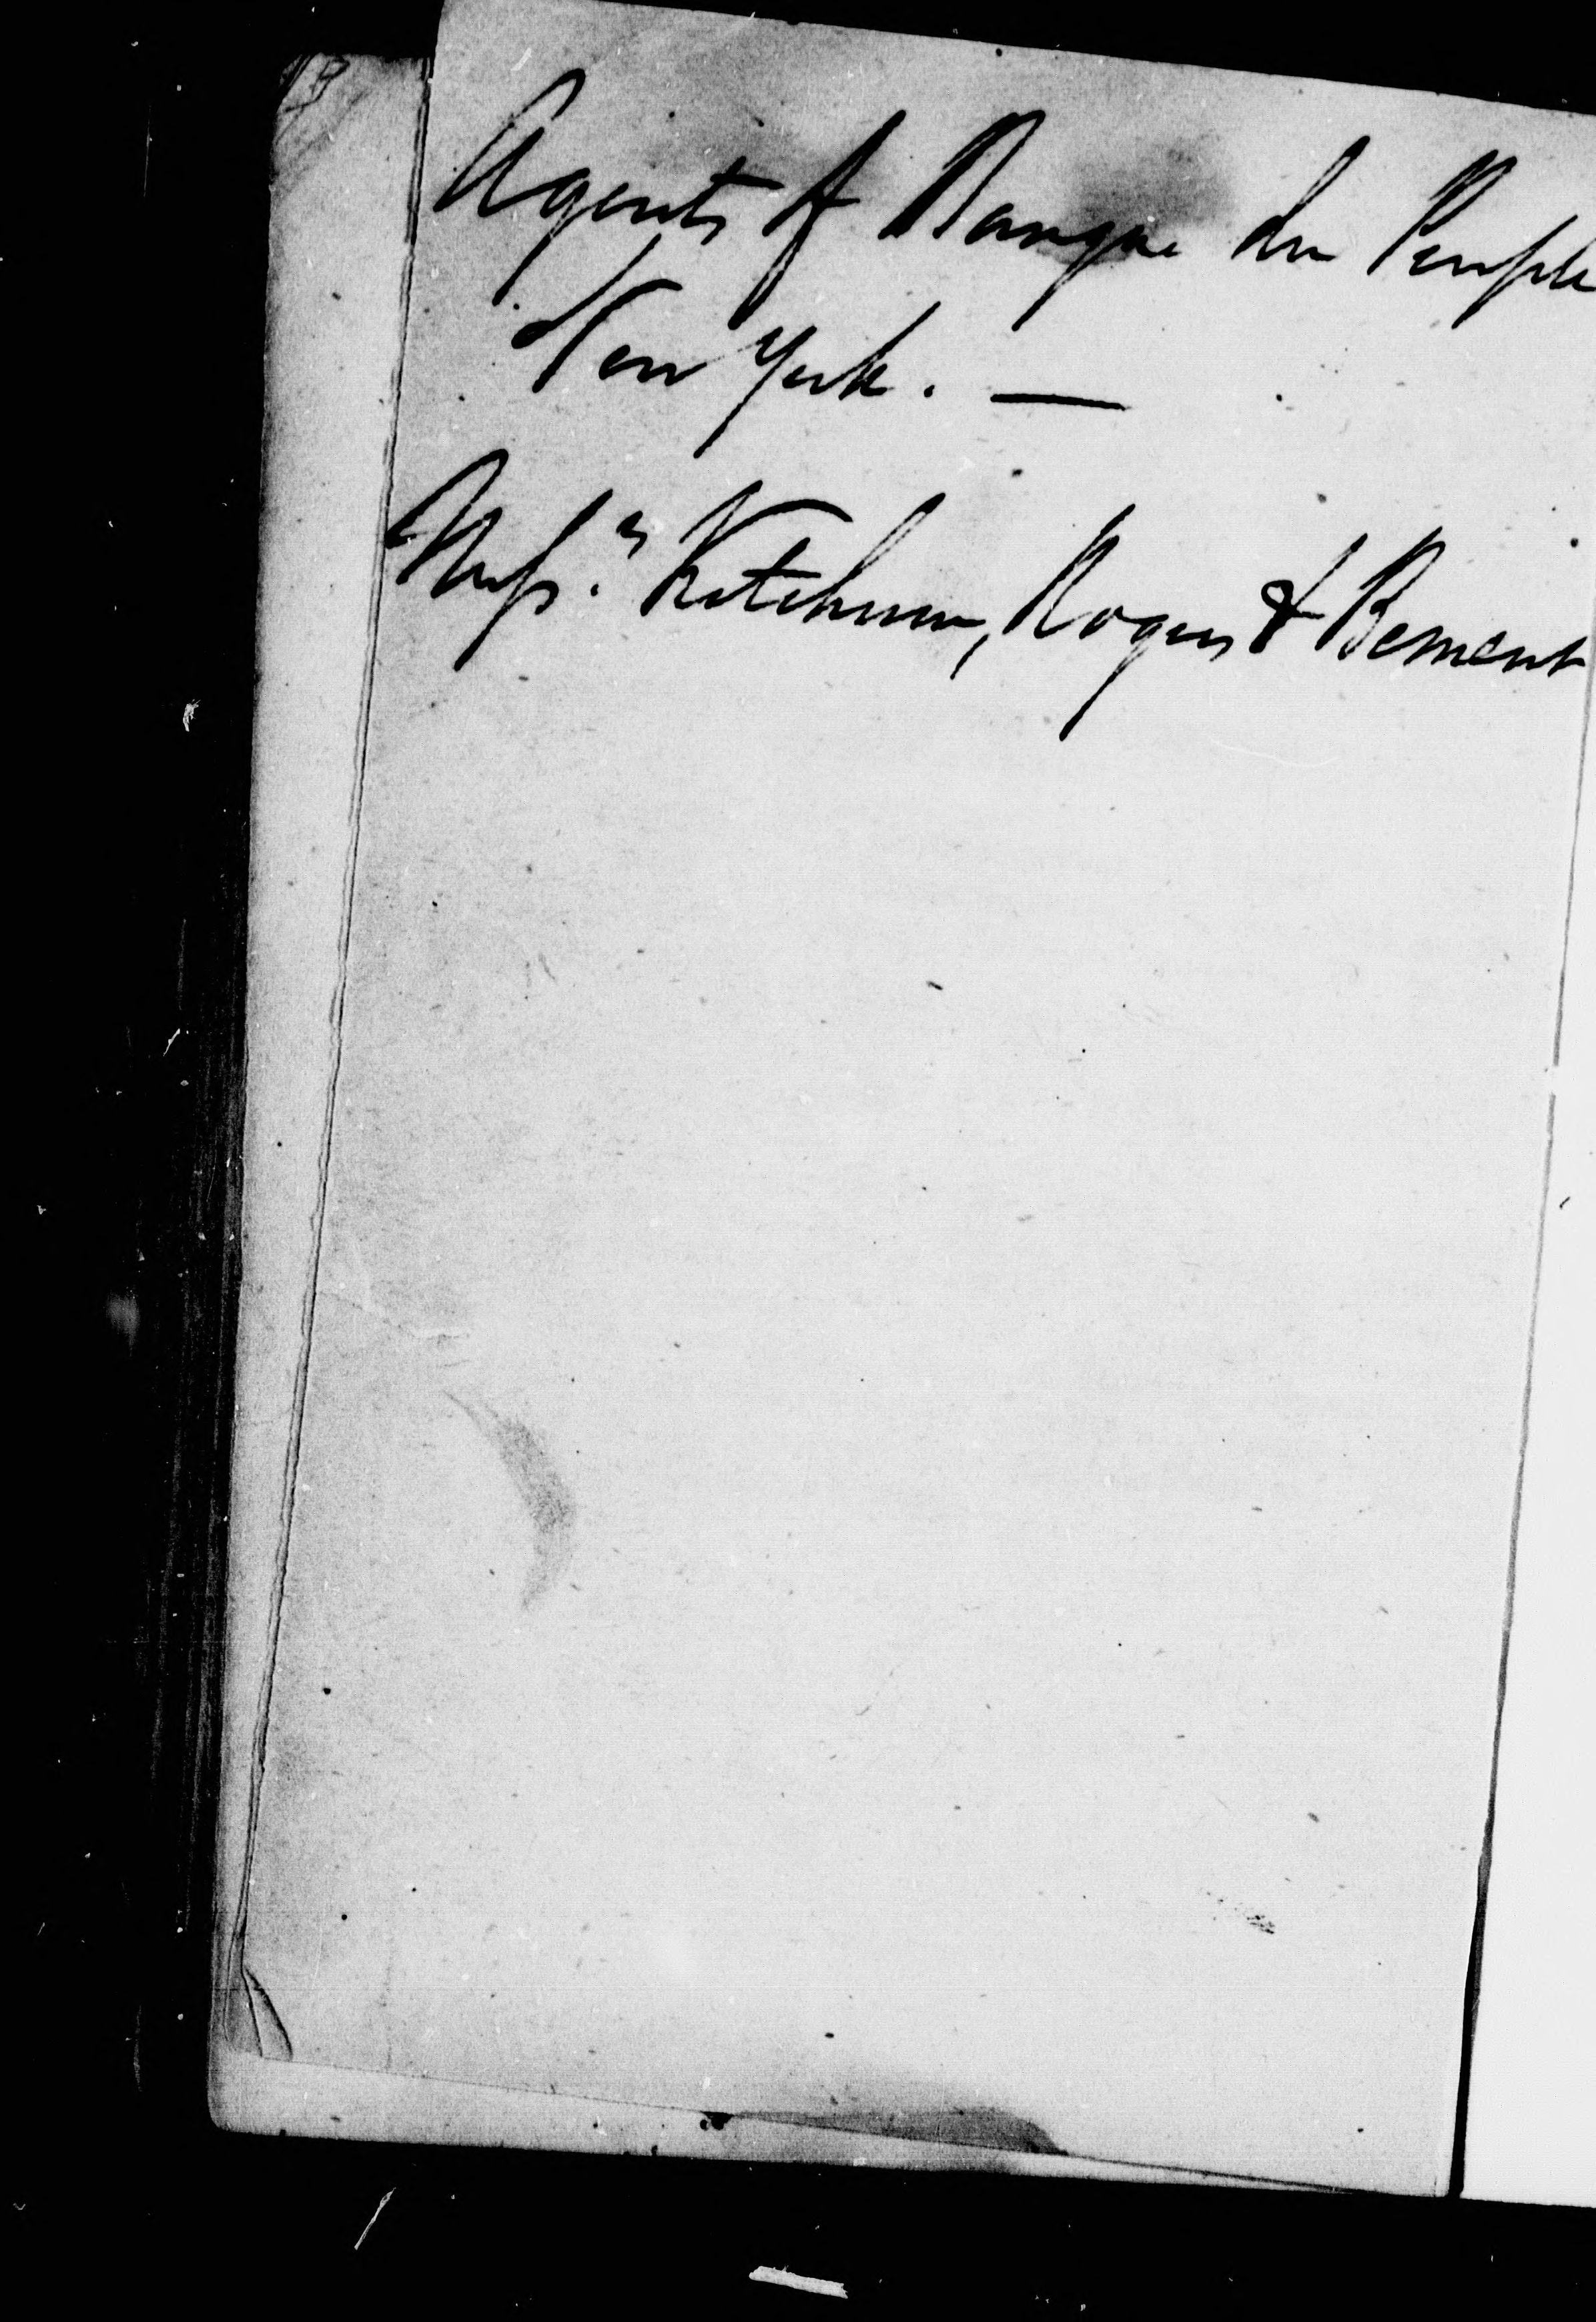 Agents of Banque du Peuple
New York. —
Messrs. Ketchum, Rogers & Bement